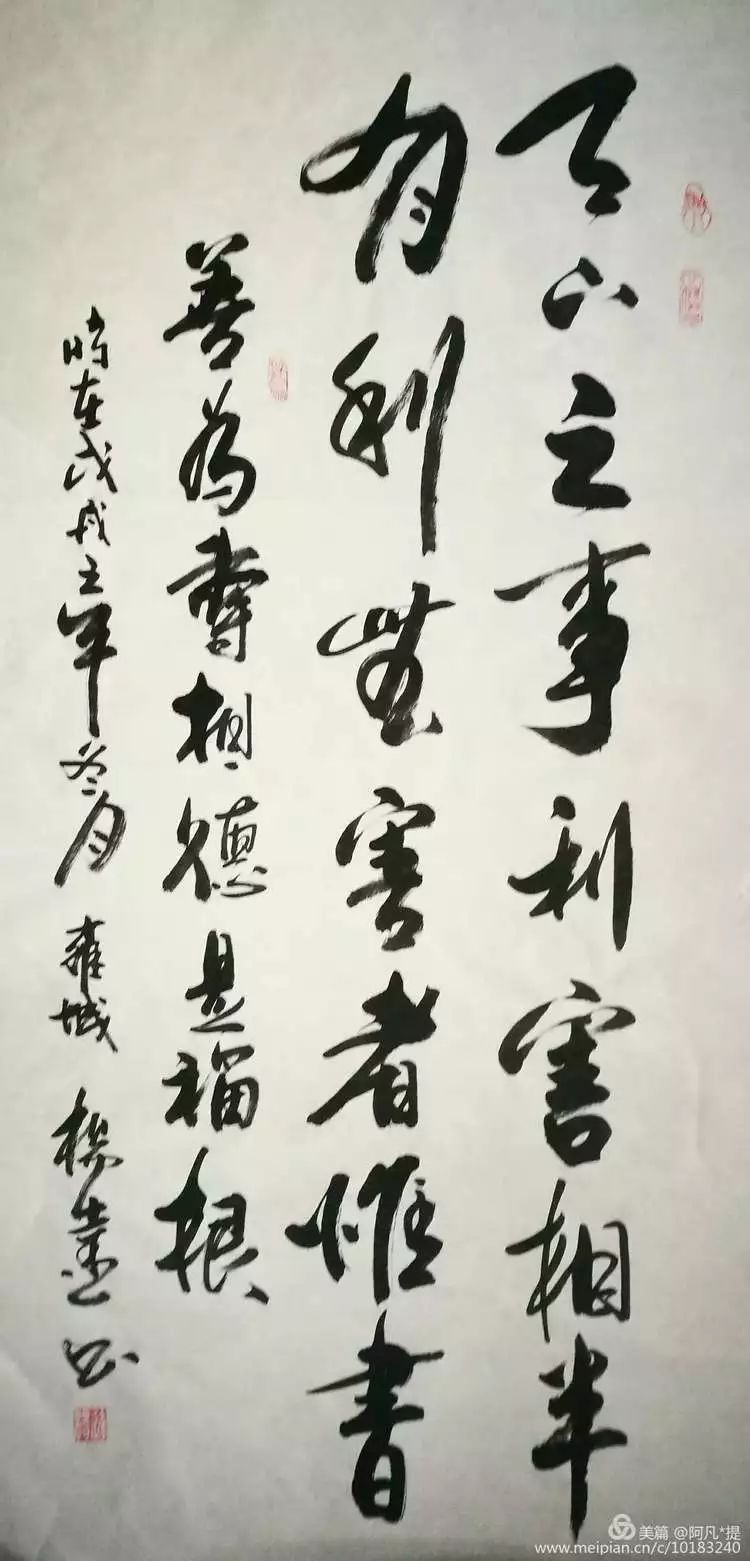 天下之事利害相半
有利無害者惟書
善為壽相德是福根
時在戊戌之年冬月 雍城 楊 書
美篇 @阿凡*提
www.meipian.cn/c/10183240